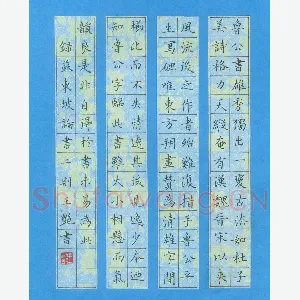 魯公書雄秀獨出一變古法如杜子
美詩格力天縱奄有漢魏晉宋以来
風流後之作者殆難措手魯公平
生寫碑唯東方朔畫贊為清雄字間
櫛比而不失清遠其後見逸少本迺
知魯公字臨此書雖大小相懸而氣
韻良是非自得於書未易為此
録蘇東坡論書二則艷書